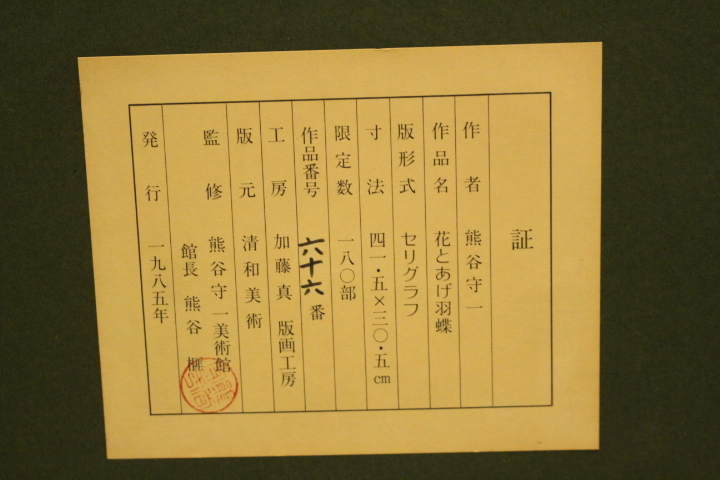 証
作者 熊谷守一
作品名 花とあげ羽蝶
版形式 セリグラフ
寸法 四一・五×三〇・五cm
限定数 一八〇部
作品番号 六十六番
工房 加藤真 版画工房
版元 清和美術
監修 熊谷守一美術館
館長 熊谷 榧
発行 一九八五年